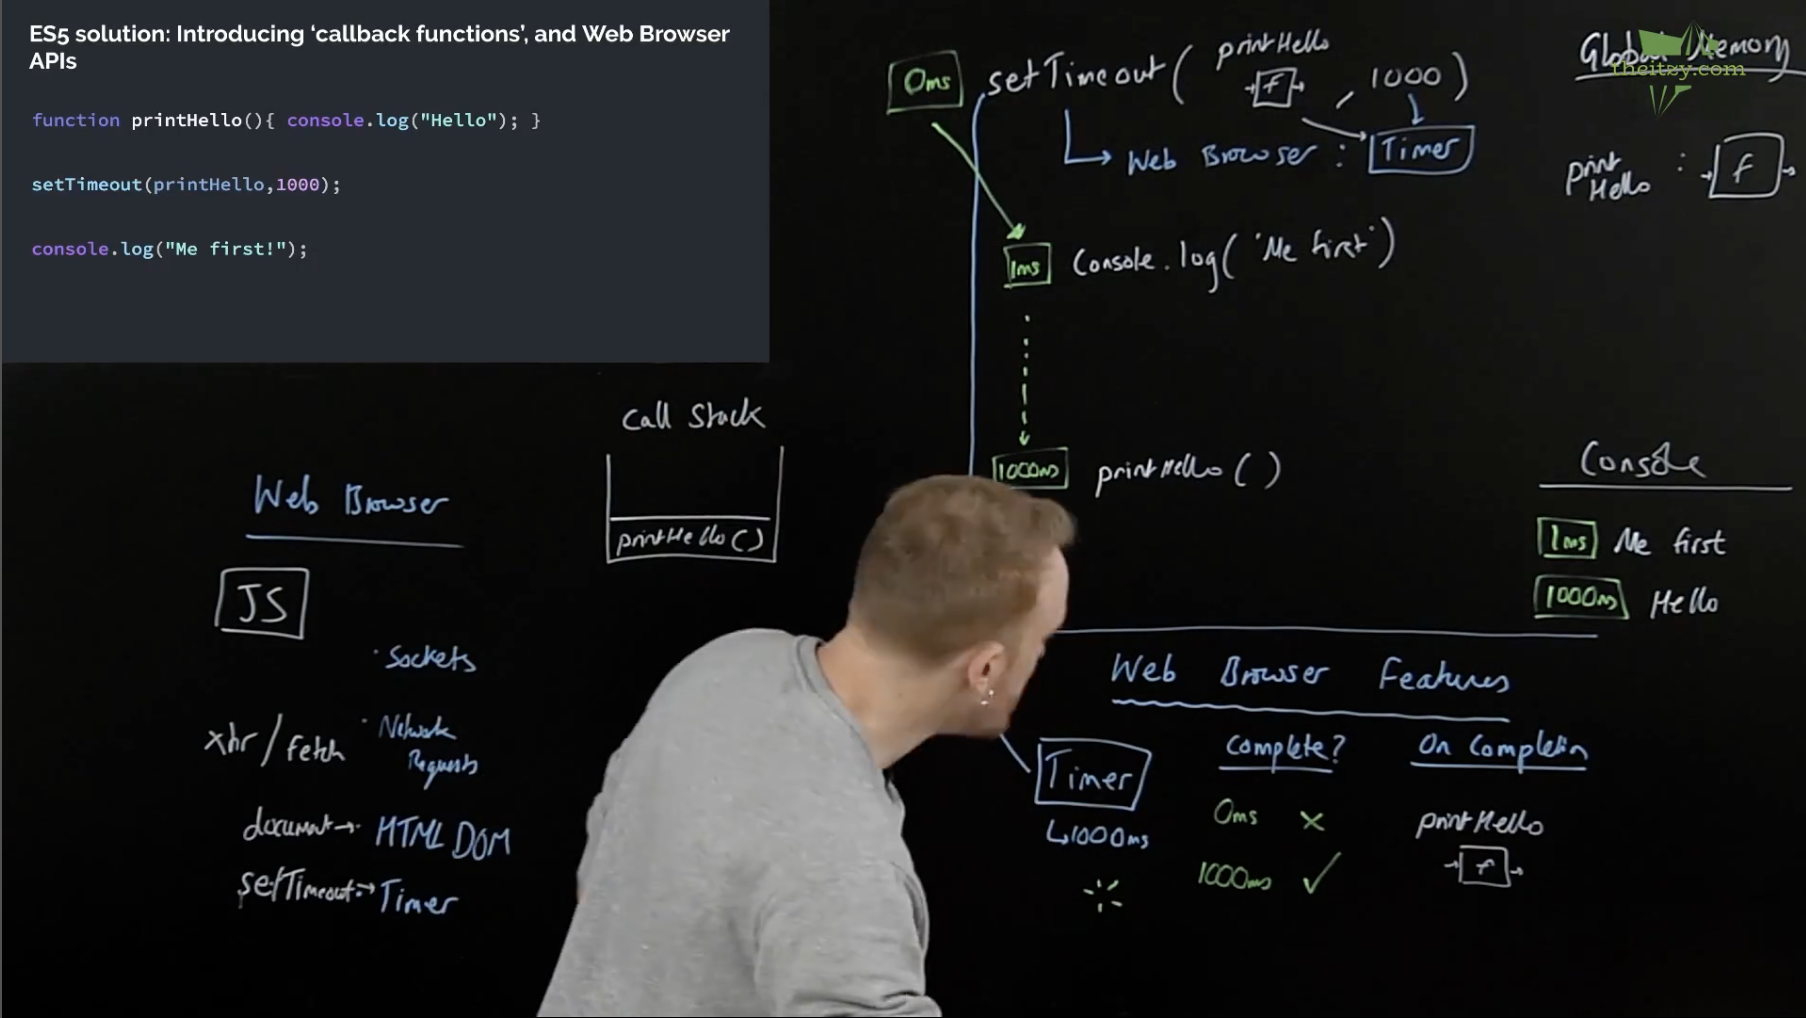 ES5 solution: Introducing ‘callback functions’, and Web Browser
APIs
function printHello(){ console.log("Hello"); }
setTimeout(printHello,1000);
console.log("Me first!");
0ms setTimeout( printHello f 1000 )
Web Browser : Timer
1ms Console.log('Me first')
1000ms printHello ( )
Global Memory
theitzy.com
print
Hello : f
Call Stack
printHello()
Web Browser
JS
· Sockets
xhr / fetch · Network
Requests
document → HTML DOM
setTimeout → Timer
Console
1ms Me first
1000ms Hello
Web Browser Features
Timer Complete? On Completin
↳1000ms 0ms × printHello
1000ms ✓ f